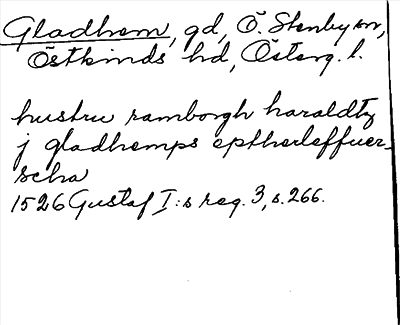 Gladhem, gd, Ö. Stenby sn,
Östkinds hd, Österg. l.
hustru ramborgh haraldtz
j gladhemps eptherleffuer-
scha
1526 Gustaf I:s reg. 3, s. 266.